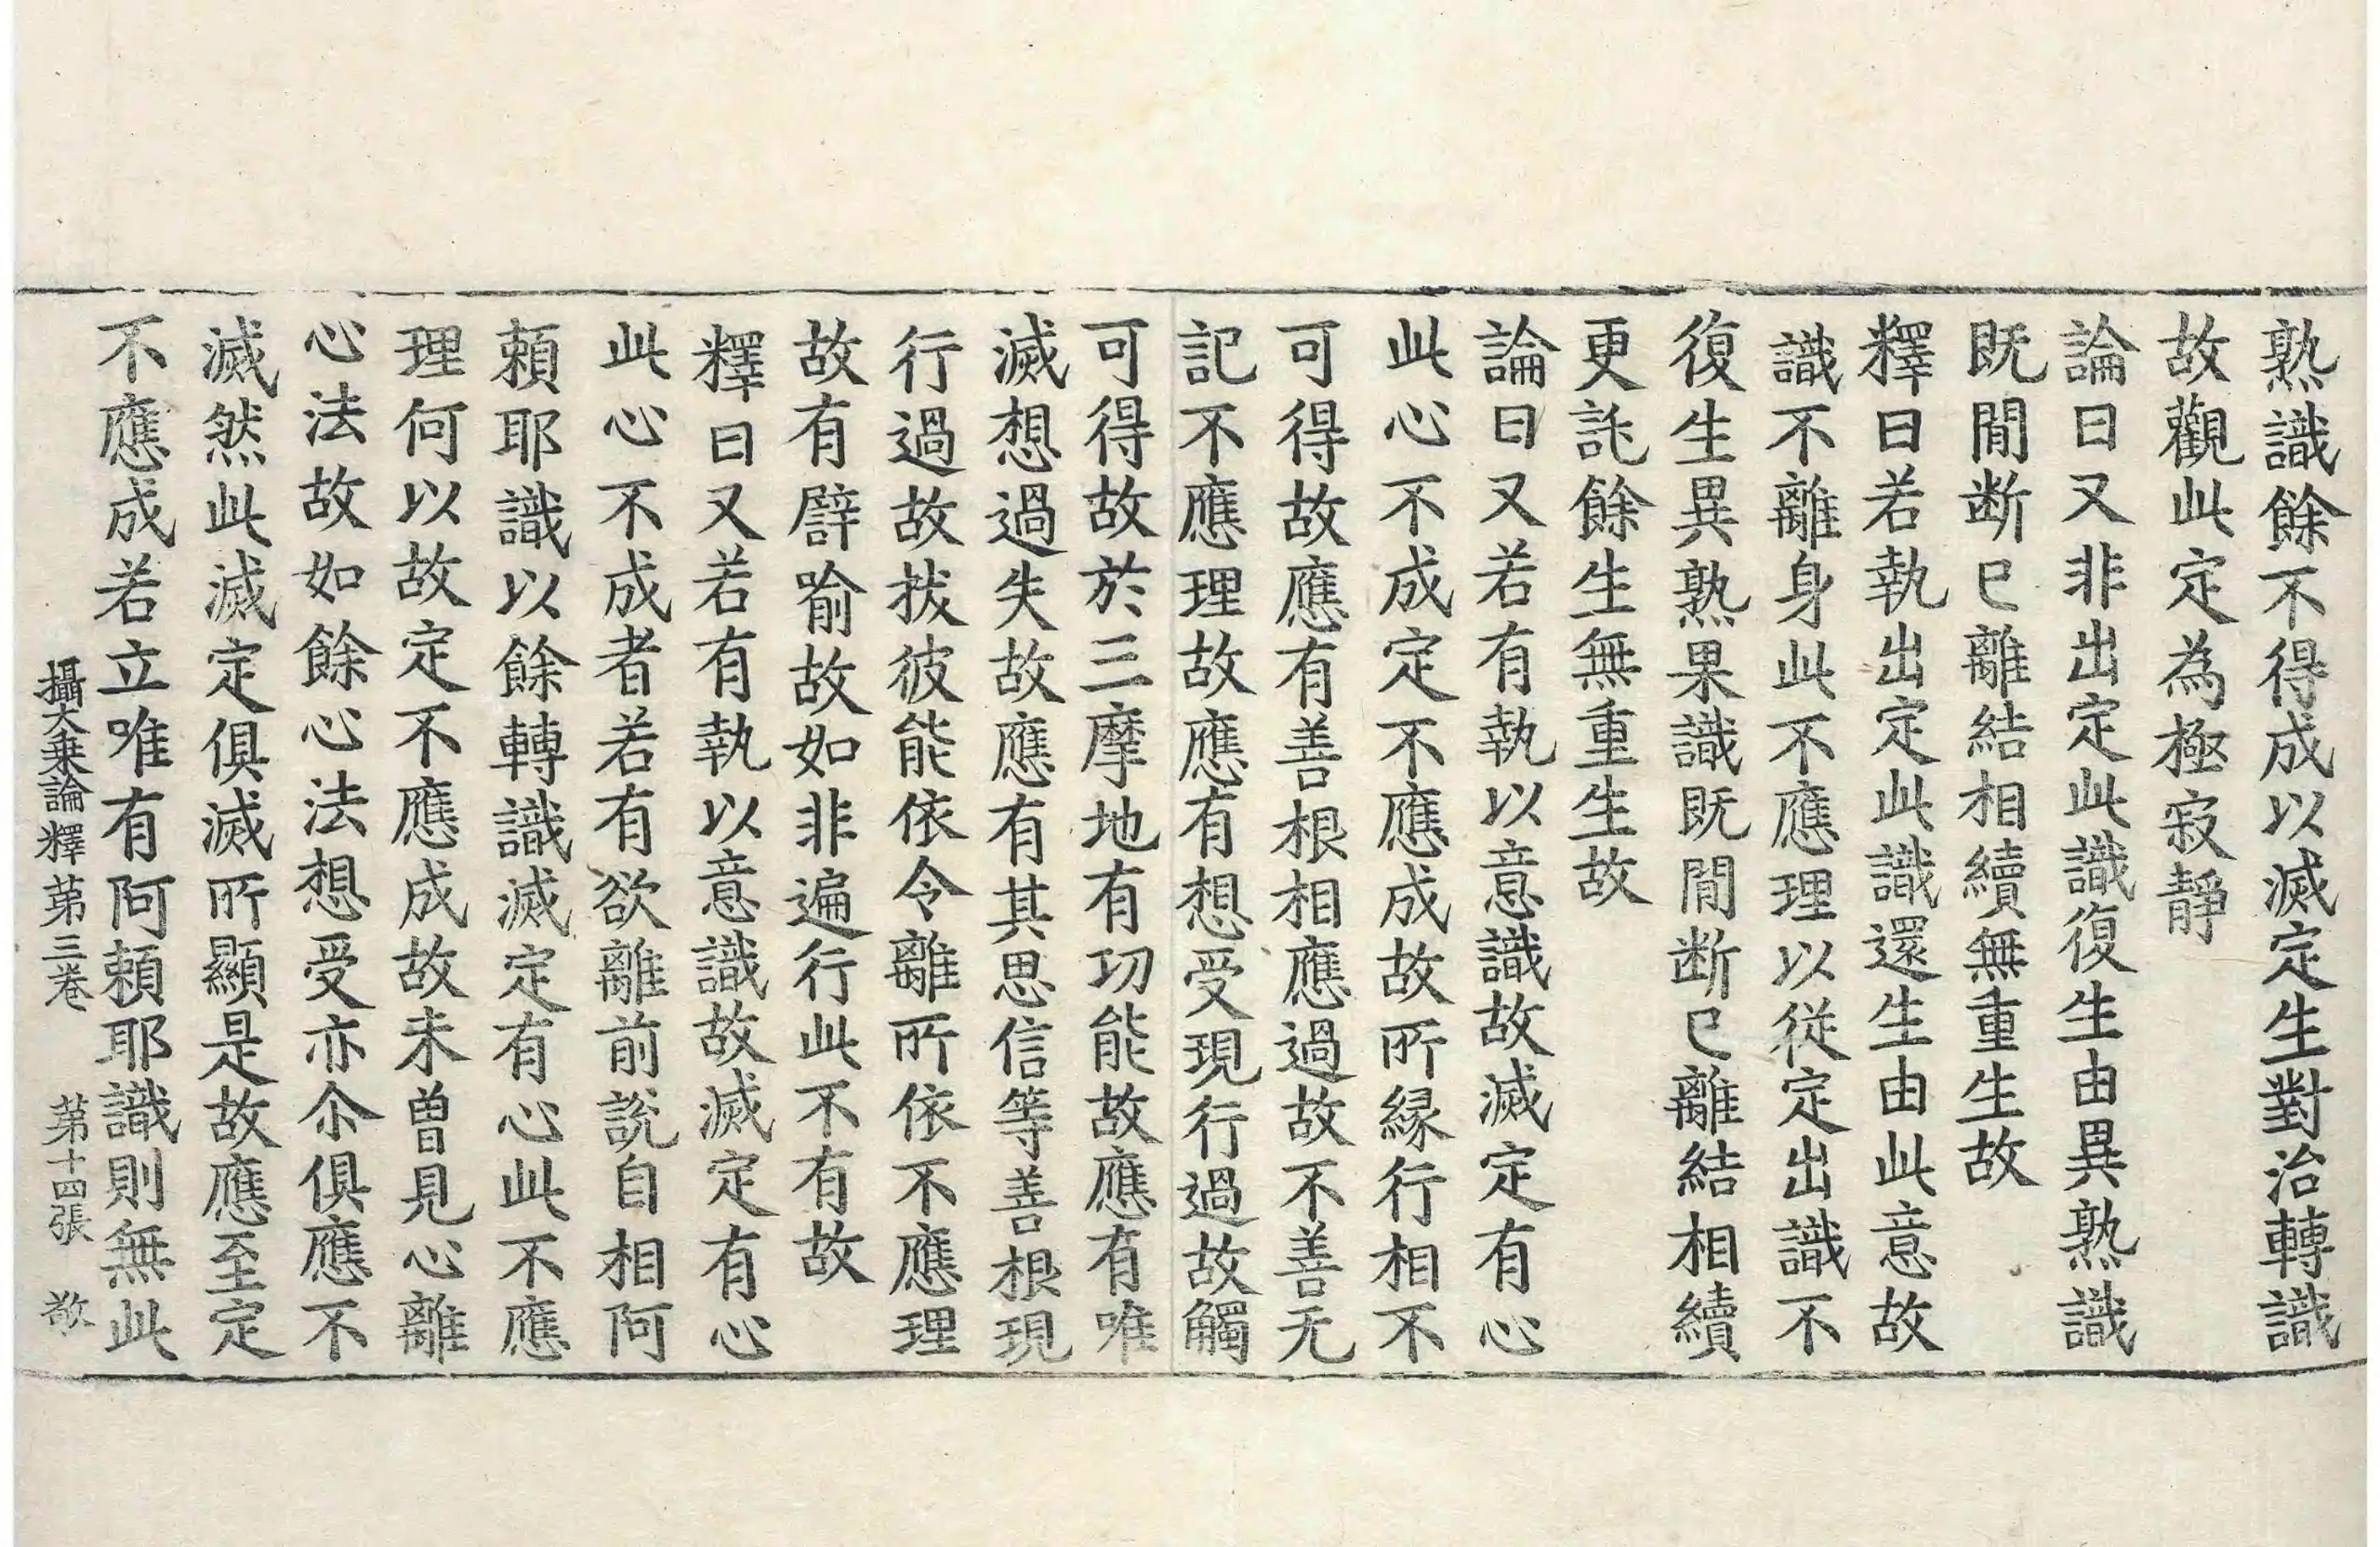 熟識餘不得成以滅定生對治轉識
故觀此定為極寂靜
論曰又非出定此識復生由異熟識
既閒断已離結相續無重生故
釋曰若執出定此識還生由此意故
識不離身此不應理以從定出識不
復生異熟果識既閒断已離結相續
更託餘生無重生故
論曰又若有執以意識故滅定有心
此心不成定不應成故所縁行相不
可得故應有善根相應過故不善无
記不應理故應有想受現行過故觸
可得故於三摩地有功能故應有唯
滅想過失故應有其思信等善根現
行過故拔彼能依令離所依不應理
故有譬喻故如非遍行此不有故
釋曰又若有執以意識故滅定有心
此心不成者若有欲離前說自相阿
頼耶識以餘轉識滅定有心此不應
理何以故定不應成故未曽見心離
心法故如餘心法想受亦尒俱應不
滅然此滅定俱滅所顯是故應至定
不應成若立唯有阿頼耶識則無此
攝大乗論釋苐三卷 苐十四張 敬